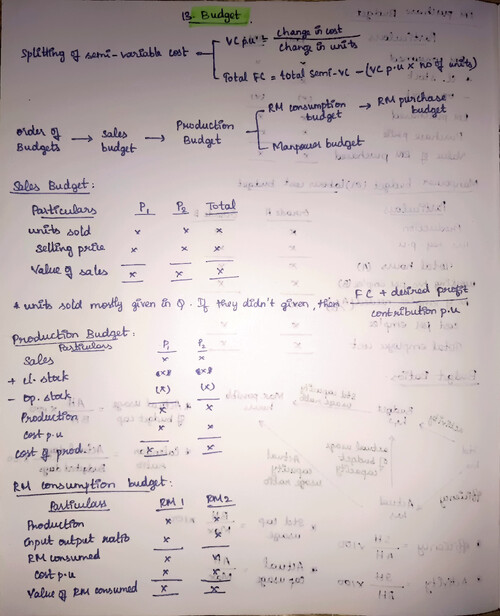 13. Budget
Splitting of semi-variable cost VC p.u = change in cost / change in units
Total FC = total semi-VC - (VC p.u x no of units)
order of Budgets → sales budget → Production Budget
RM consumption budget → RM purchase budget
Manpower budget
Sales Budget:
Particulars P1 P2 Total
units sold x x x
selling price x x x
Value of sales x x x
* units sold mostly given in Q. If they didn't given, then FC + desired profit / contribution p.u
Production Budget:
Particulars P1 P2
Sales x x
+ cl. stock
- op. stock (x) (x)
Production x x
cost p.u x x
cost of prod. x x
RM consumption budget:
Particulars RM 1 RM 2
Production x x
Input output ratio x x
RM consumed x x
cost p.u x x
Value of RM consumed x x